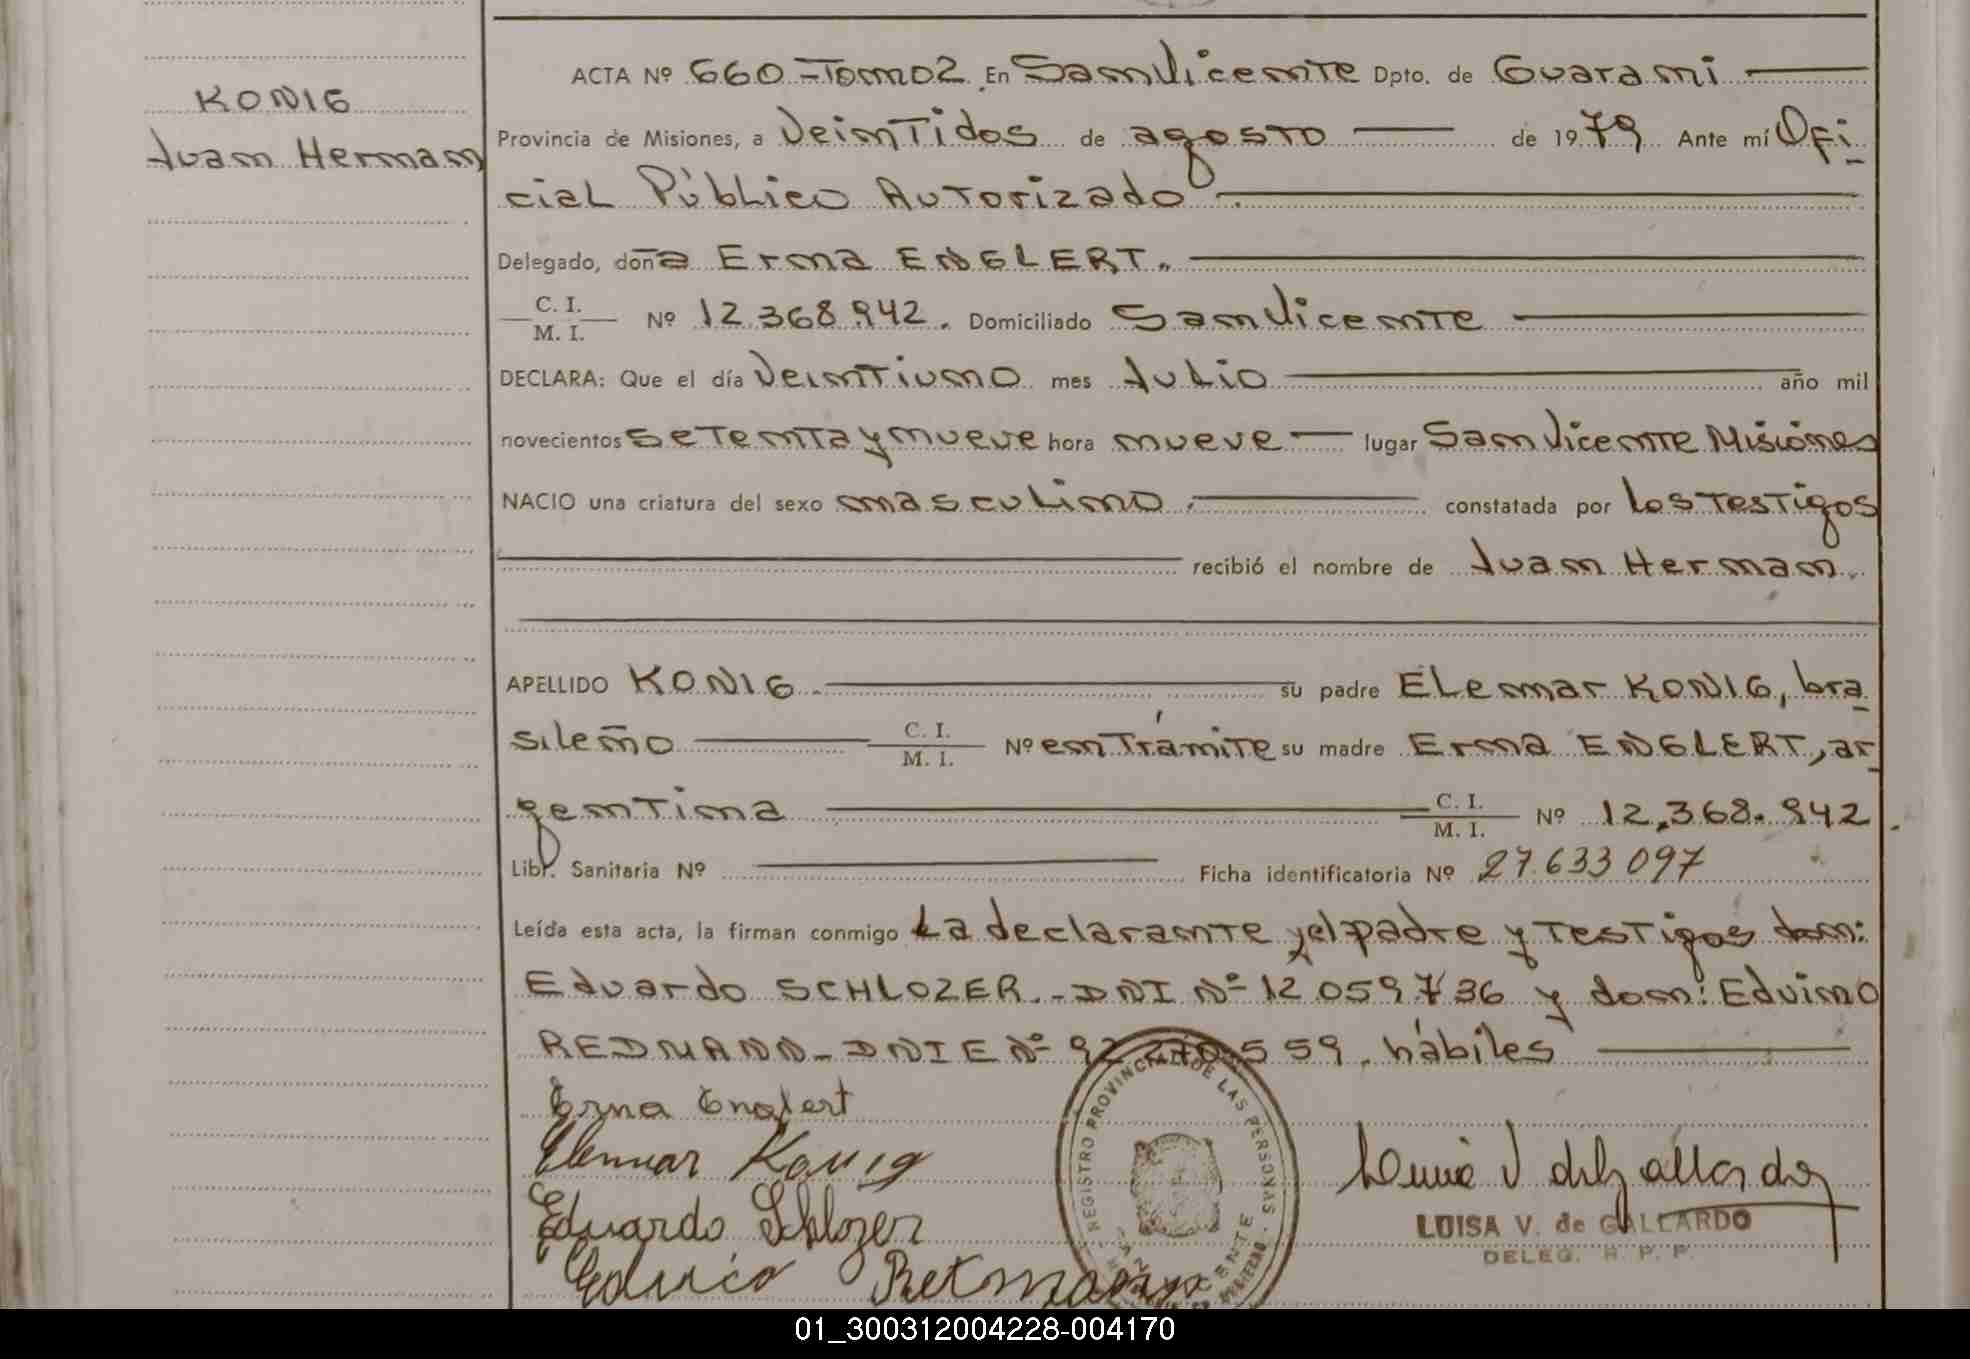 KONIG
Juan Herman
ACTA Nº 660 - Tomo 2. En San Vicente Dpto. de Guarani
Provincia de Misiones, a Veintidos de agosto de 1979 Ante mí Ofi-
cial Público Autorizado.
Delegado, doña Erma ENGLERT.
C. I.
M. I. Nº 12.368.942. Domiciliado San Vicente
DECLARA: Que el día Veintiuno mes Julio año mil
novecientos setenta y nueve hora nueve lugar San Vicente Misiones
NACIO una criatura del sexo masculino. constatada por los testigos
recibió el nombre de Juan Herman.
APELLIDO KONIG. su padre Elemar KONIG, bra-
sileño C. I.
M. I. Nº en Trámite su madre Erma ENGLERT, ar-
gentina C. I.
M. I. Nº 12.368.942.
Libr. Sanitaria Nº Ficha identificatoria Nº 27.633 097
Leída esta acta, la firman conmigo La declarante y el padre y Testigos don:
Eduardo SCHLOZER. - DNI Nº 12 059 736 y don: Eduino
REDMANN - DNIE Nº 92 270 559. hábiles
Erna Englert
Elemar Konig
Eduardo Schlozer
Retmann
REGISTRO PROVINCIAL DE LAS PERSONAS
LUISA V. de GALLARDO
DELEG. R. P. P.
01_300312004228-004170